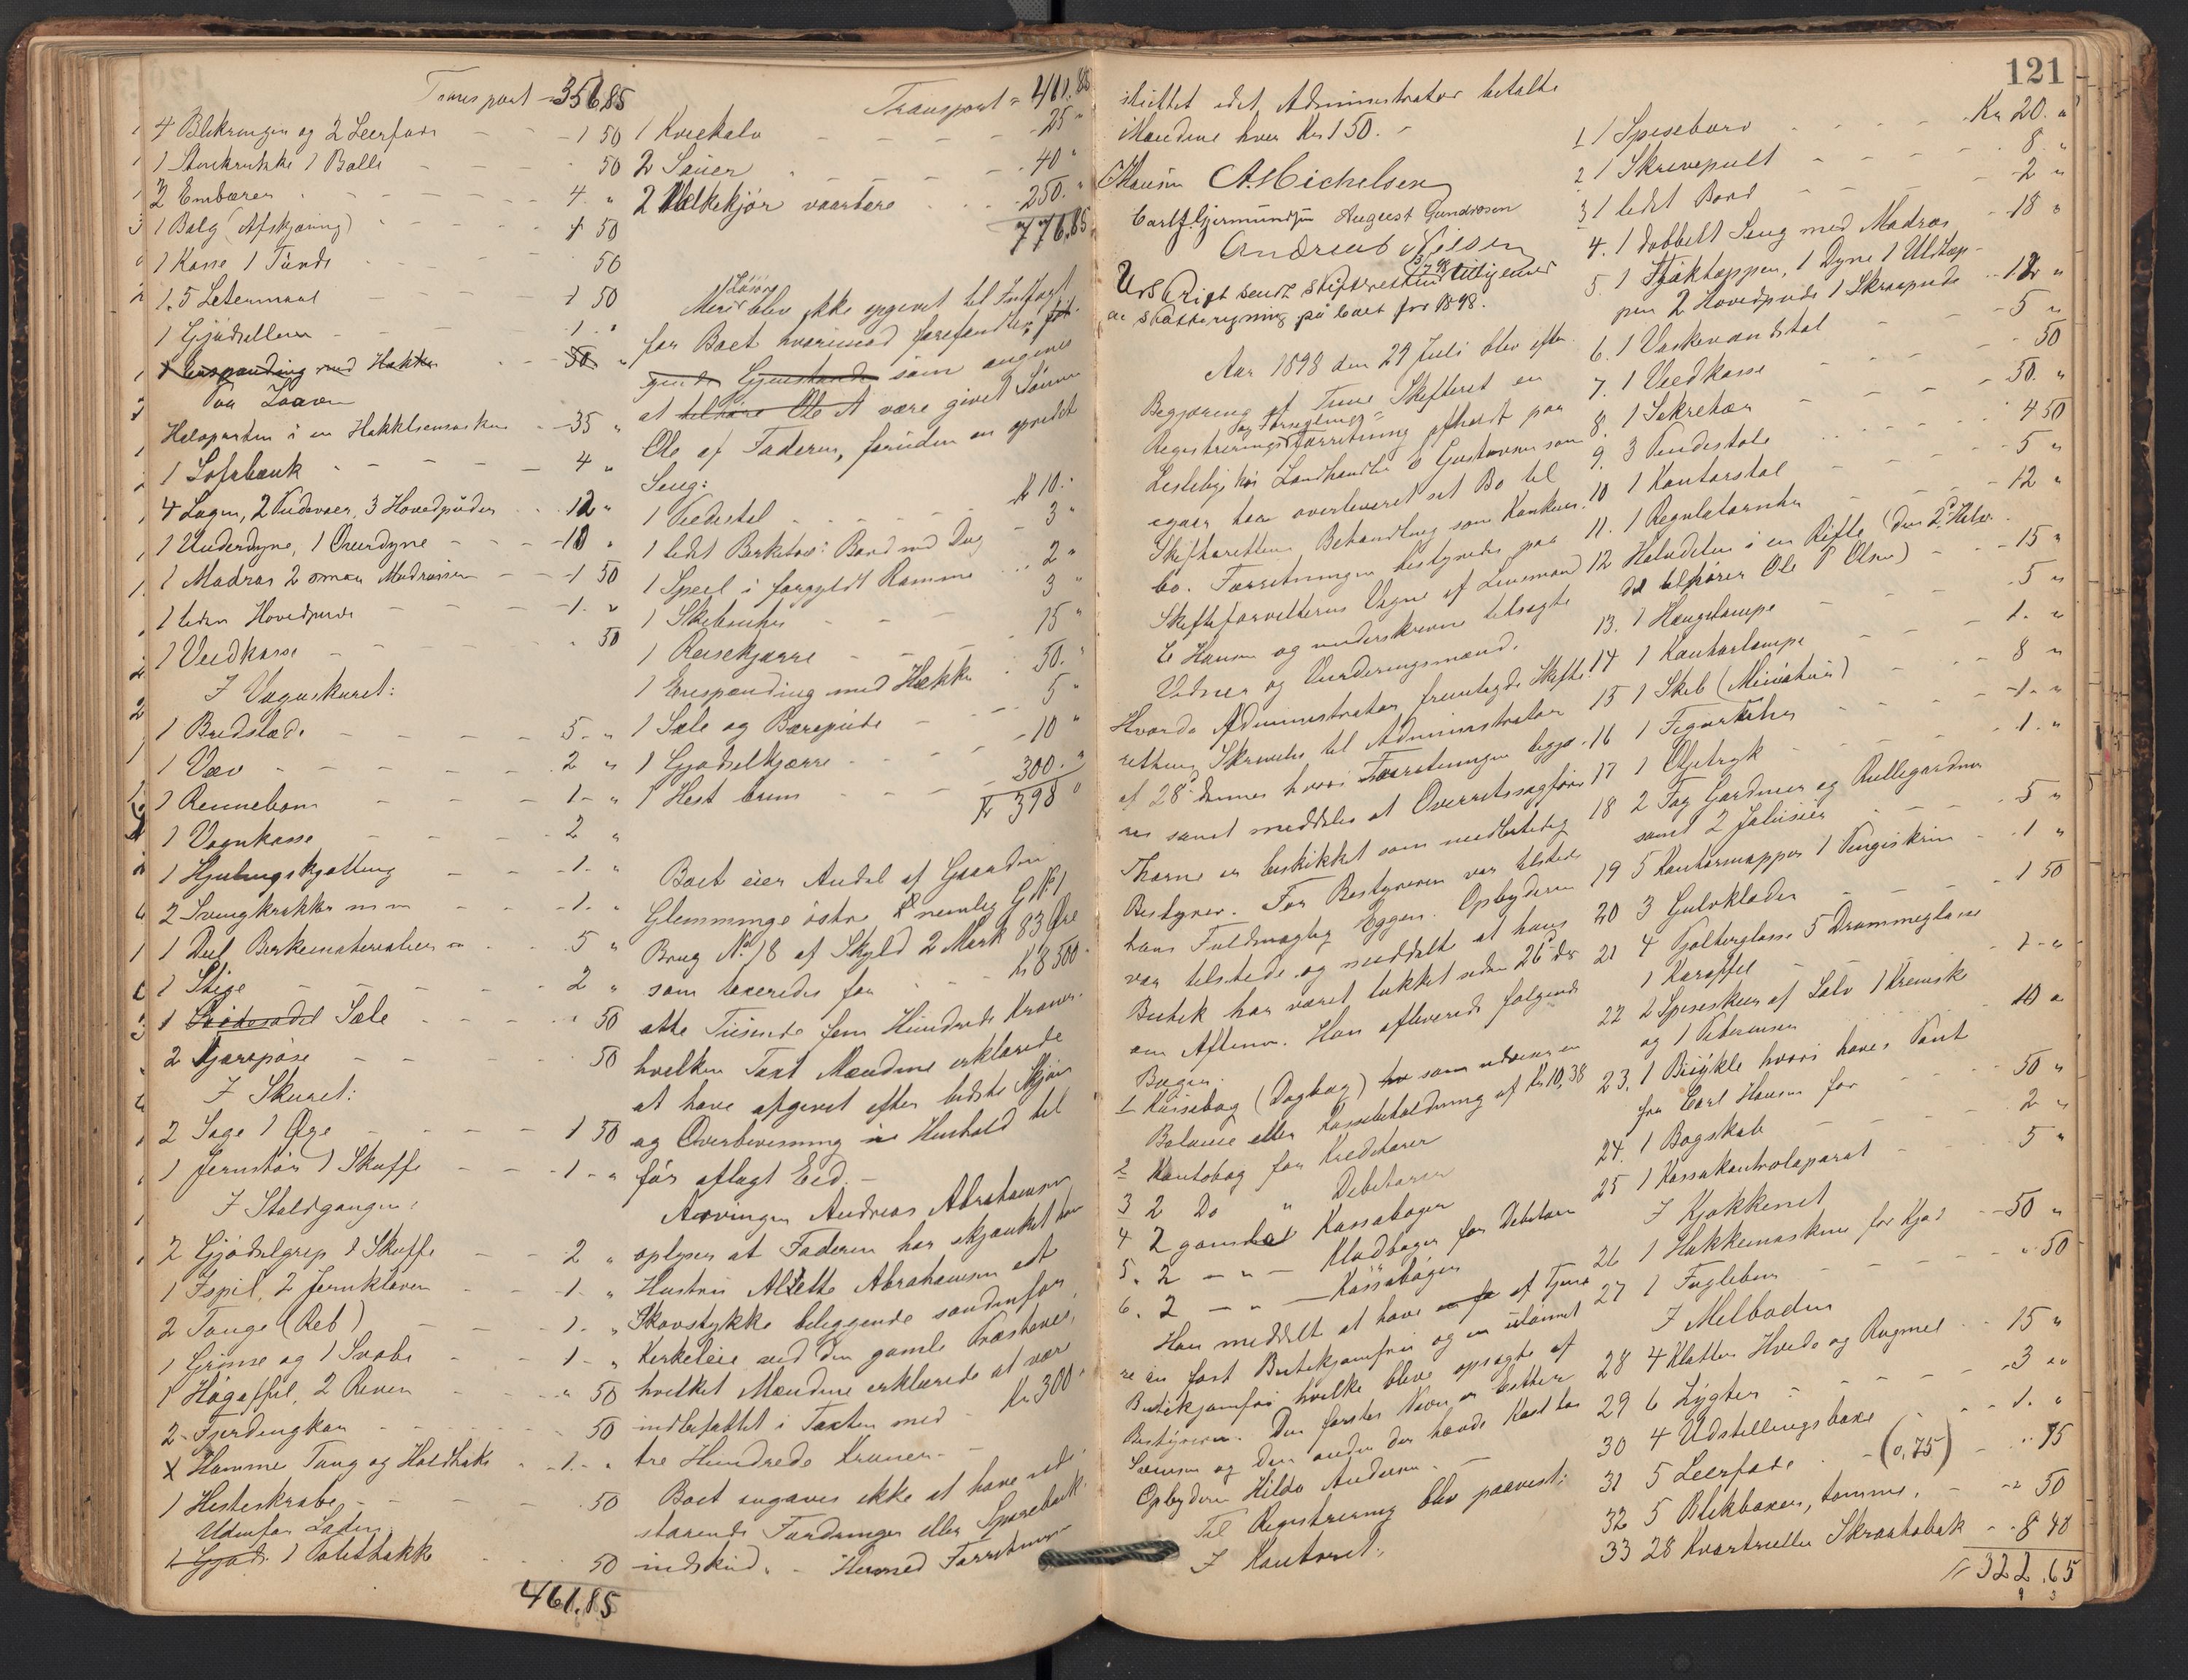 Transport - 356,85
4 Blikringer og 2 Leerfade - - - 1 50
1 Stenkrukke 1 Balle - - - " 50
2 Embærer - - - 4. "
1 Balg (Afskjæring) - - - 1 50
1 Kasse 1 Tønde 50
1. 5 Letermaal 1 50
1 Gjødsel - 1. "
1 Enspænding med Hækker - 50 "
Paa Laaven
Halvparten i en Hakkelsemaskin - 35 "
1 Lofsbænk - - - 4 "
4 Lagen, 2 Pudevaer, 3 Hovedpuder - 12 "
1 Underdyne, 1 Overdyne - - 10 "
1 Madras 2 smaa Madrasser - - 1 50
1 liden Hovedpude - - - 1. "
1 Vedkasse - - - " 50
I Vognskuret:
1 Bredslæde - - - 5. "
1 Væv - - - 2 "
1 Rennebom - - - 1- "
1 Vognkasse - - - 2 "
1 Hjulingskjætting - - 1. "
2 Svingkrakker m m - - 1. "
1 Del Berkematerialier - . 5 "
1 Stige - - - 2 "
1 Sæle - - - " 50
2 Kjærepose - - - 50
I Skuret:
2 Sage 1 Øxe - - - 1 50
1 Jernstør 1 Skuffe - - 1- "
I Staldgangen:
2 Gjødselgrep 1 Skuffe - - 2 "
1 Ispil, 2 Jernkløver - - 1. "
2 Tauge (Reb) - - - 1. "
1 Grime og 1 Svøbe - - 1- "
1 Høgaffel, 2 River - - " 50
2 Fjerdingkar - - - 50
X Hamme Tang og Holdhake - 1. "
1 Hesteskrabe - - - .50
Udenfor Laden
1 Potethakke 50
461.85
Transport = 461.85
1 Kviekalv - - - 25 "
2 Sauer - - - 40 "
2 Melkekjør vaarbære - - . 250. "
776,85
Mere Løsøre blev ikke opgivet til Indførsel
for Boet hvorimod forefandtes føl-
gende Gjenstande som angives
at tilhøre Ole A være givet Sønnen
Ole af Faderen, foruden en opredt
Seng:
1 Pidestal - - - Kr 10. "
1 lidet Berketræs Bord med Dug - 3 "
1 Speil i forgyldt Ramme - - 2 "
1 Skibenhus - - - 3 "
1 Reisekjærre - - - 15 "
1 Enspænding med Hækker . 50. "
1 Sæle og Bærepude - - 5 "
1 Gjødselkjærre - - - 10 "
1 Hest brun - - - 300. "
Kr 398 "
Boet eier Andel af Gaarden
Glemminge østre nemlig G No 1
Brug No 18 af Skyld 2 Mark 83 Øre
som taxeredes for - - Kr 8 500 -
otte Tusinde fem Hundrede Kroner.
hvilken Taxt Mændene erklærede
at have afgivet efter bedste Skjøn
og Overbevisning i Henhold til
før aflagt Eed. -
Arvingen Andreas Abrahamsen
oplyser at Faderen har skjænket hans
Hustru Alette Abrahamsen edt
Skovstykke beliggende søndenfor
Kirkeleie ved den gamle Træskevei,
hvilket Mændene erklærede at være
indbefattet i Taxten med - Kr 300 "
tre Hundrede Kroner. -
Boet angaves ikke at have ude-
staaende Fordringer eller Sparebank-
indskud. - Hermed Forretningen
121
sluttet idet Administrator betalte
Mændene hver Kr 1 50. -
CHansen A. Michelsen
Carl J. Gjermundsen August Gundrosen
Andreas Nielsen
Udskrift sendt Skifteretten tilligemed
en Skatteregning på boet for 1898.
Aar 1898 den 29 Juli blev efter
Begjæring af Tune Skifteret en
Registrerings og Forseglings= Forretning afholdt paa
Lisleby hos Landhandler E Gustavsen som
igaar har overleveret sit Bo til
Skifterettens Behandling som Konkurs-
bo. Forretningen bestyredes paa
Skifteforvalterens Vegne af Lensmand
C Hansen og underskrevne tilsagte
Vidner og Vurderingsmænd.
Hvorda Administrator fremlagde Skifte-
rettens Skrivelse til Administrator
af 28 dennes hvori Forretningen begjæ-
res samt meddeles at Overretssagfører
Thorne er beskikket som midlertidig
Bestyrer. For Bestyreren var tilstede
hans Fuldmægtig Eggen. Opbyderen
var tilstede og meddelte at hans
Butik har været lukket siden 26 ds
om Aftenen. Han afleverede følgende
Bøger:
1 Kassebog (Dagbog) som udviser en
Balance eller Kassebeholdning af Kr 10,38
2 Kontobog for Kreditorer
3 2 Do " Debitorer
4 2 gamle Kassabøger
5. 2 - " - Kladbøger for Debitorer
6. 2 - " - Kassabøger
Han meddelte at have af Tjene-
re en fast Butikjomfru og en ulønnet
Butikjomfru hvilke bleve opsagte af
Bestyreren. Den førstes Navn er Esther
Svensen og den anden der havde Kost hos
Opbyderen Hilda Andersen. -
Til Registrering blev paavist:
I Kontoret:
1 1 Spisebord - - - Kr 20. "
2 1 Skrivepult - - - 8. "
3 1 lidet Bord - - - 2 "
4. 1 dobbelt Seng med Madras - 18 "
5 1 Fjæltæppen, 1 Dyne 1 Uldtæp-
pen 2 Hovedpude 1 Skraapude - 12 "
6. 1 Vaskevandstol - - 5 "
7. 1 Vedkasse - - - 50
8. 1 Sekretær - - - 50. "
9. 3 Pindestole - - - 4 50
10 1 Kontorstol - - - 5 "
11. 1 Regulatoruhr - - - 12 "
12 Halvdelen i en Rifle (den 2den Halv-
del tilhører Ole P Olsen) - - 15 "
13. 1 Hængelampe - - - 5 "
14 1 Kontorlampe - - - 1. "
15 1 Skib (Miniature) - - 8 "
16 1 Figurkikker - - - 1- "
17 1 Oljetryk - - - 1. "
18 2 Fag Gardiner og Rullegardiner
samt 2 Jalusier - - 5 "
19 5 Kontormapper 1 Pengeskrin - 1 "
20 3 Gulvklæder - - - 1 50
21 4 Pjolterglasse 5 Drammeglasse
1 Karaffel - - - 1- "
22 2 Spiseskeer af Sølv 1 Kremske
og 1 Potageske - - - 10 "
23. 1 Bicykle hvori haves Pant
fra Carl Hansen for - - 50 "
24. 1 Bogskab - - - 2 "
25 1 Kassakontrolaparat - - 5 "
I Kjøkkenet
26 1 Hakkemaskine for Kjød - - 50 "
27 1 Fuglebur - - - " 50
I Melboden
28 4 Klatter Hvede og Rugmel - - 15 "
29 6 Lygter - - - 3 "
30 4 Udstillingsboxe - - - 1. "
31 5 Leerfade - (0,75) - - " 75
32 5 Blikboxer, tomme, - " 50
33 28 Kvartruller Skraatobak - - 8 40
Kr 322.65